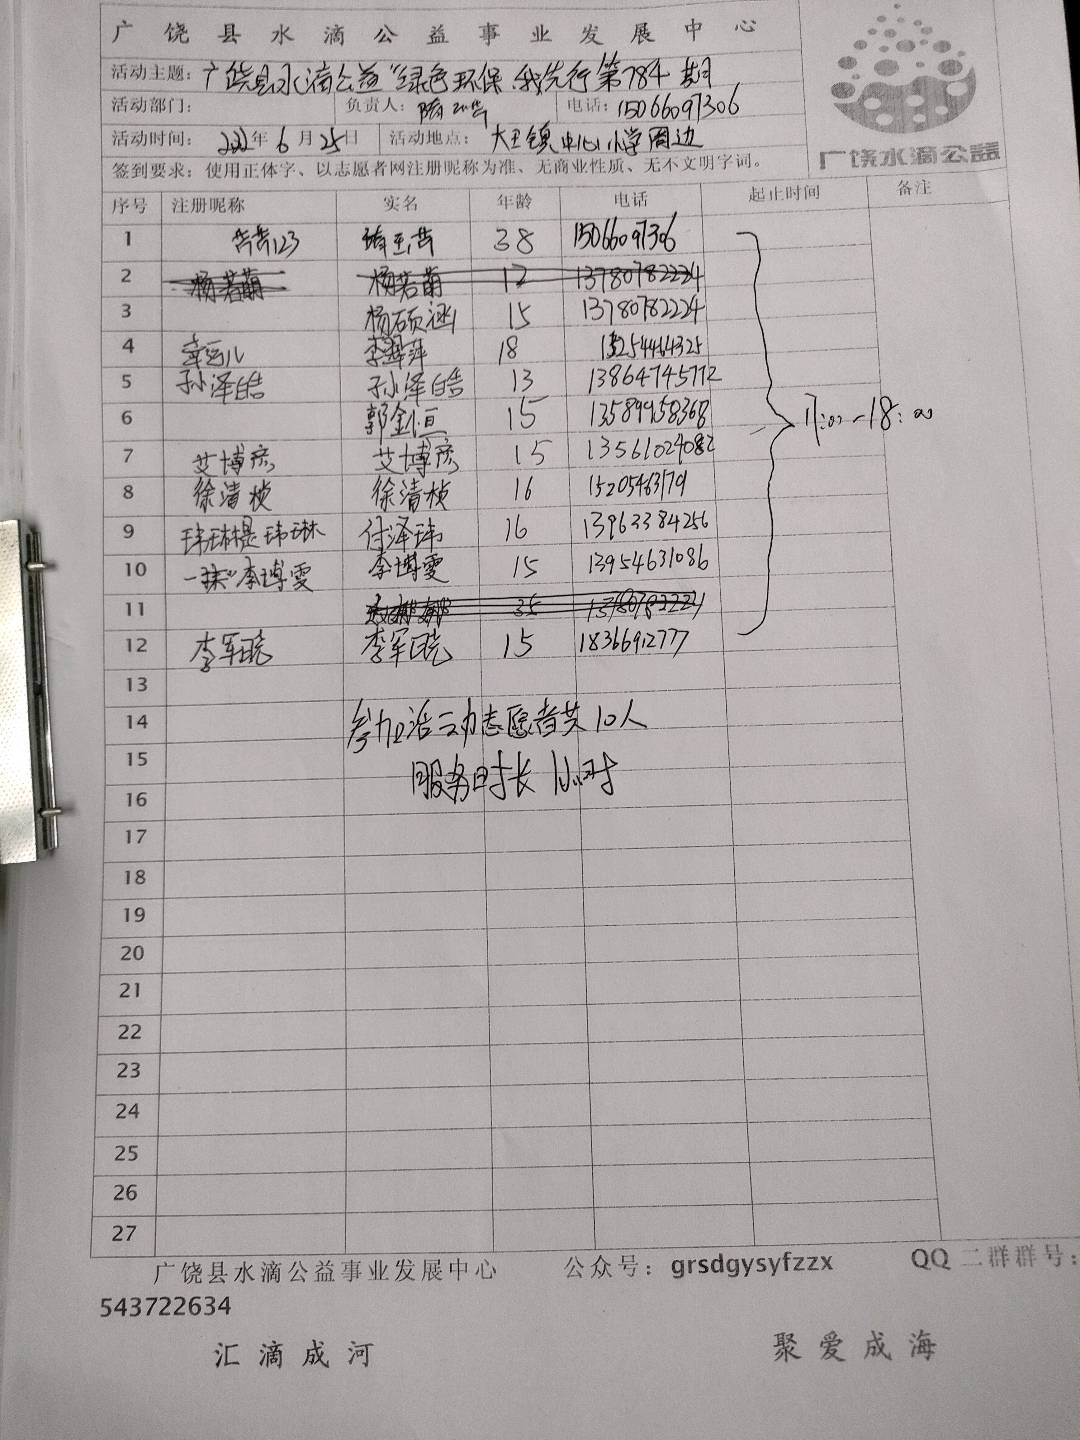 广饶县水滴公益事业发展中心
活动主题：广饶县水滴公益"绿色环保,我先行第784期
活动部门： 负责人： 电话：15066097306
活动时间：2022年6月25日 活动地点：大王镇中心小学周边
签到要求：使用正体字、以志愿者网注册昵称为准、无商业性质、无不文明字词。
广饶水滴公益
序号 注册昵称 实名 年龄 电话 起止时间 备注
1 38 15066097306
2 杨若萌 杨若萌 12 13780782224
3 杨硕涵 15 13780782224
4 幸运儿 李翠萍 18 15254464325
5 孙泽皓 孙泽皓 13 13864745772
6 郭金恒 15 13589958368
17:00-18:00
7 艾博彦 艾博彦 15 13561024082
8 徐清桢 徐清桢 16 15205463179
9 玮琳是玮琳 付泽玮 16 13963384256
10 一抹"李博雯 李博雯 15 13954631086
11 35
12 李军晓 李军晓 15 18366912777
13
14 参加活动志愿者共10人
15 服务时长1小时
16
17
18
19
20
21
22
23
24
25
26
27
广饶县水滴公益事业发展中心 公众号：grsdgysyfzzx QQ二群群号：
543722634
汇滴成河 聚爱成海